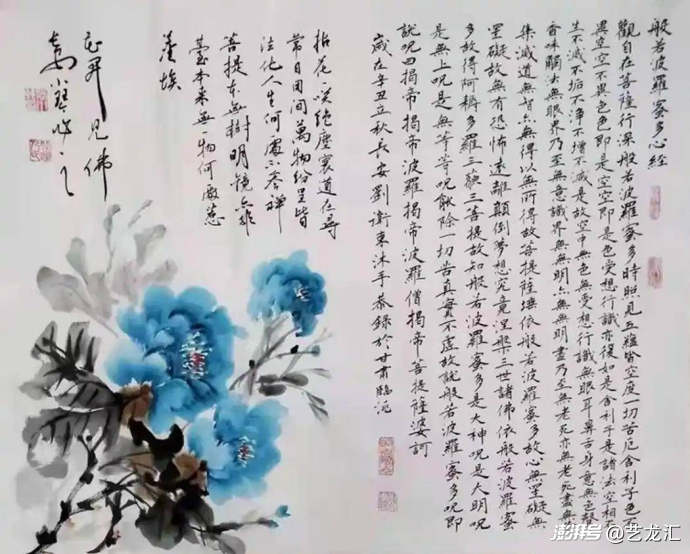 般若波羅蜜多心經
觀自在菩薩行深般若波羅蜜多時照見五蘊皆空度一切苦厄舍利子色不
異空空不異色色即是空空即是色受想行識亦復如是舍利子是諸法空相不
生不滅不垢不淨不增不減是故空中無色無受想行識無眼耳鼻舌身意無色聲
香味觸法無眼界乃至無意識界無無明亦無無明盡乃至無老死亦無老死盡無苦
集滅道無智亦無得以無所得故菩提薩埵依般若波羅蜜多故心無罣礙無
罣礙故無有恐怖遠離顛倒夢想究竟涅槃三世諸佛依般若波羅蜜
多故得阿耨多羅三藐三菩提故知般若波羅蜜多是大神呪是大明呪
是無上呪是無等等呪能除一切苦真實不虛故說般若波羅蜜多呪即
說呪曰揭帝揭帝波羅揭帝波羅僧揭帝菩提薩婆訶
歲在辛丑立秋長安劉衛東沐手恭錄於甘肅臨洮
拈花一笑絕塵寰道在尋
常日用間萬物紛呈皆
法化人生何處不參禪
菩提本無樹明鏡亦非
臺本來無一物何處惹
塵埃
見佛
澎湃号@艺龙汇